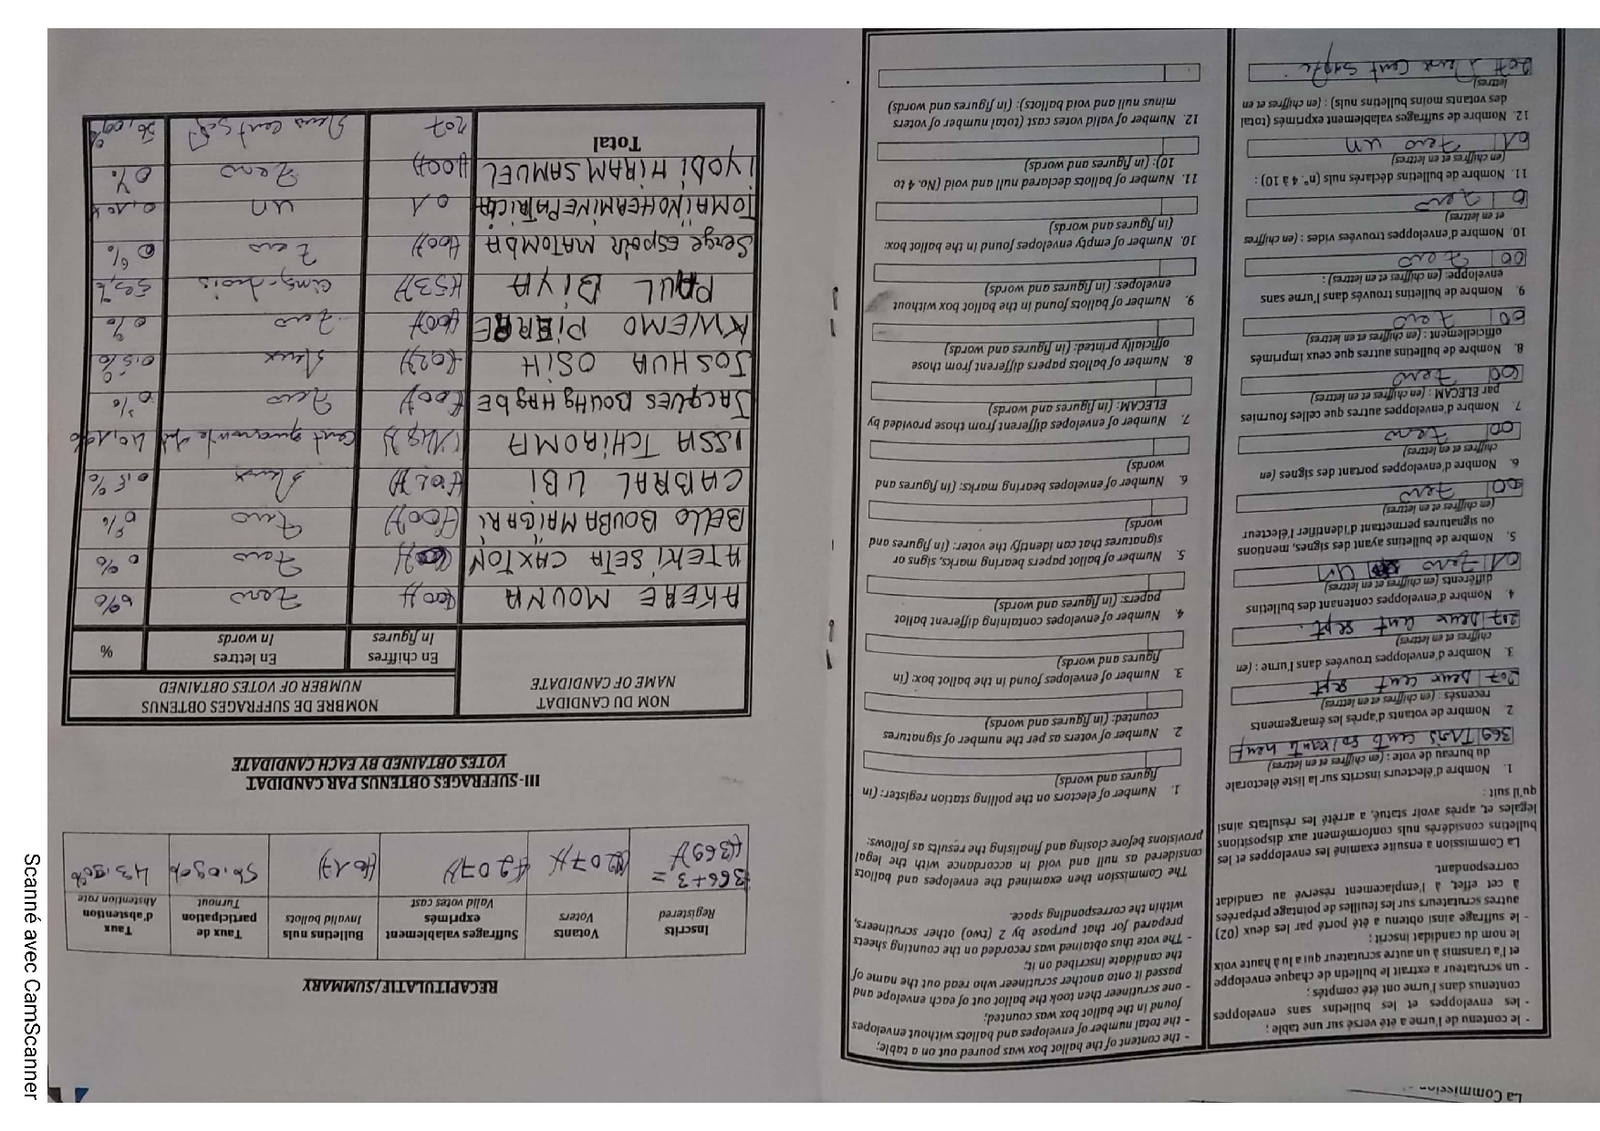 La Commission
- le contenu de l'urne a été versé sur une table ;
- les enveloppes et les bulletins sans enveloppes
contenus dans l'urne ont été comptés ;
- un scrutateur a extrait le bulletin de chaque enveloppe
et l'a transmis à un autre scrutateur qui a lu à haute voix
le nom du candidat inscrit ;
- le suffrage ainsi obtenu a été porté par les deux (02)
autres scrutateurs sur les feuilles de pointage préparées
à cet effet, à l'emplacement réservé au candidat
correspondant.
La Commission a ensuite examiné les enveloppes et les
bulletins considérés nuls conformément aux dispositions
légales et, après avoir statué, a arrêté les résultats ainsi
qu'il suit :
1. Nombre d'électeurs inscrits sur la liste électorale
du bureau de vote : (en chiffres et en lettres)
369 Trois cent soixante neuf
2. Nombre de votants d'après les émargements
recensés : (en chiffres et en lettres)
207 Deux cent sept
3. Nombre d'enveloppes trouvées dans l'urne : (en
chiffres et en lettres)
207 Deux cent sept.
4. Nombre d'enveloppes contenant des bulletins
différents (en chiffres et en lettres)
01 Zero un
5. Nombre de bulletins ayant des signes, mentions
ou signatures permettant d'identifier l'électeur
(en chiffres et en lettres)
00 Zero
6. Nombre d'enveloppes portant des signes (en
chiffres et en lettres)
00 Zero
7. Nombre d'enveloppes autres que celles fournies
par ELECAM : (en chiffres et en lettres)
00 Zero
8. Nombre de bulletins autres que ceux imprimés
officiellement : (en chiffres et en lettres)
00 Zero
9. Nombre de bulletins trouvés dans l'urne sans
enveloppe: (en chiffres et en lettres) :
00 Zero
10. Nombre d'enveloppes trouvées vides : (en chiffres
et en lettres)
0 Zero
11. Nombre de bulletins déclarés nuls (n°. 4 à 10) :
(en chiffres et en lettres)
01 Zero un
12. Nombre de suffrages valablement exprimés (total
des votants moins bulletins nuls) : (en chiffres et en
lettres)
207 Deux cent sept
- the content of the ballot box was poured out on a table;
- the total number of envelopes and ballots without envelopes
found in the ballot box was counted;
- one scrutineer then took the ballot out of each envelope and
passed it onto another scrutineer who read out the name of
the candidate inscribed on it;
- The vote thus obtained was recorded on the counting sheets
prepared for that purpose by 2 (two) other scrutineers,
within the corresponding space.
The Commission then examined the envelopes and ballots
considered as null and void in accordance with the legal
provisions before closing and finalising the results as follows:
1. Number of electors on the polling station register: (in
figures and words)
2. Number of voters as per the number of signatures
counted: (in figures and words)
3. Number of envelopes found in the ballot box: (in
figures and words)
4. Number of envelopes containing different ballot
papers: (in figures and words)
5. Number of ballot papers bearing marks, signs or
signatures that can identify the voter: (in figures and
words)
6. Number of envelopes bearing marks: (in figures and
words)
7. Number of envelopes different from those provided by
ELECAM: (in figures and words)
8. Number of ballots papers different from those
officially printed: (in figures and words)
9. Number of ballots found in the ballot box without
envelopes: (in figures and words)
10. Number of empty envelopes found in the ballot box:
(in figures and words)
11. Number of ballots declared null and void (No. 4 to
10): (in figures and words)
12. Number of valid votes cast (total number of voters
minus null and void ballots): (in figures and words)
RECAPITULATIF/SUMMARY
Inscrits Votants Suffrages valablement exprimés Bulletins nuls Taux de participation Taux d'abstention
Registered Voters Valid votes cast Invalid ballots Turnout Abstention rate
366+3= (369) (207) (207) (01) 56.09% 43.90%
III- SUFFRAGES OBTENUS PAR CANDIDAT
VOTES OBTAINED BY EACH CANDIDATE
NOM DU CANDIDAT NOMBRE DE SUFFRAGES OBTENUS
NAME OF CANDIDATE NUMBER OF VOTES OBTAINED
En chiffres En lettres %
In figures In words
AKERE MOUNA (00) Zero 0%
ATEKI SETA CAXTON Zero 0%
BELLO BOUBA MAÏGARI (00) Zero 0%
CABRAL LIBI (02) Deux 0.5%
ISSA TCHIROMA Cent quarante 40,10%
JACQUES BOUHGHAGBE (00) Zero 0%
JOSHUA OSIH (02) Deux 0.5%
KWEMO PIERRE (00) Zero 0%
PAUL BIYA (53)
Serge ESPOIR MATOMBA (00) Zero 0%
TOMAÏNO HERMINE PATRICIA 01 un
IYODI HIRAM SAMUEL (00) Zero 0%
Total 207 Deux cent sept 56,09%
Scanné avec CamScanner